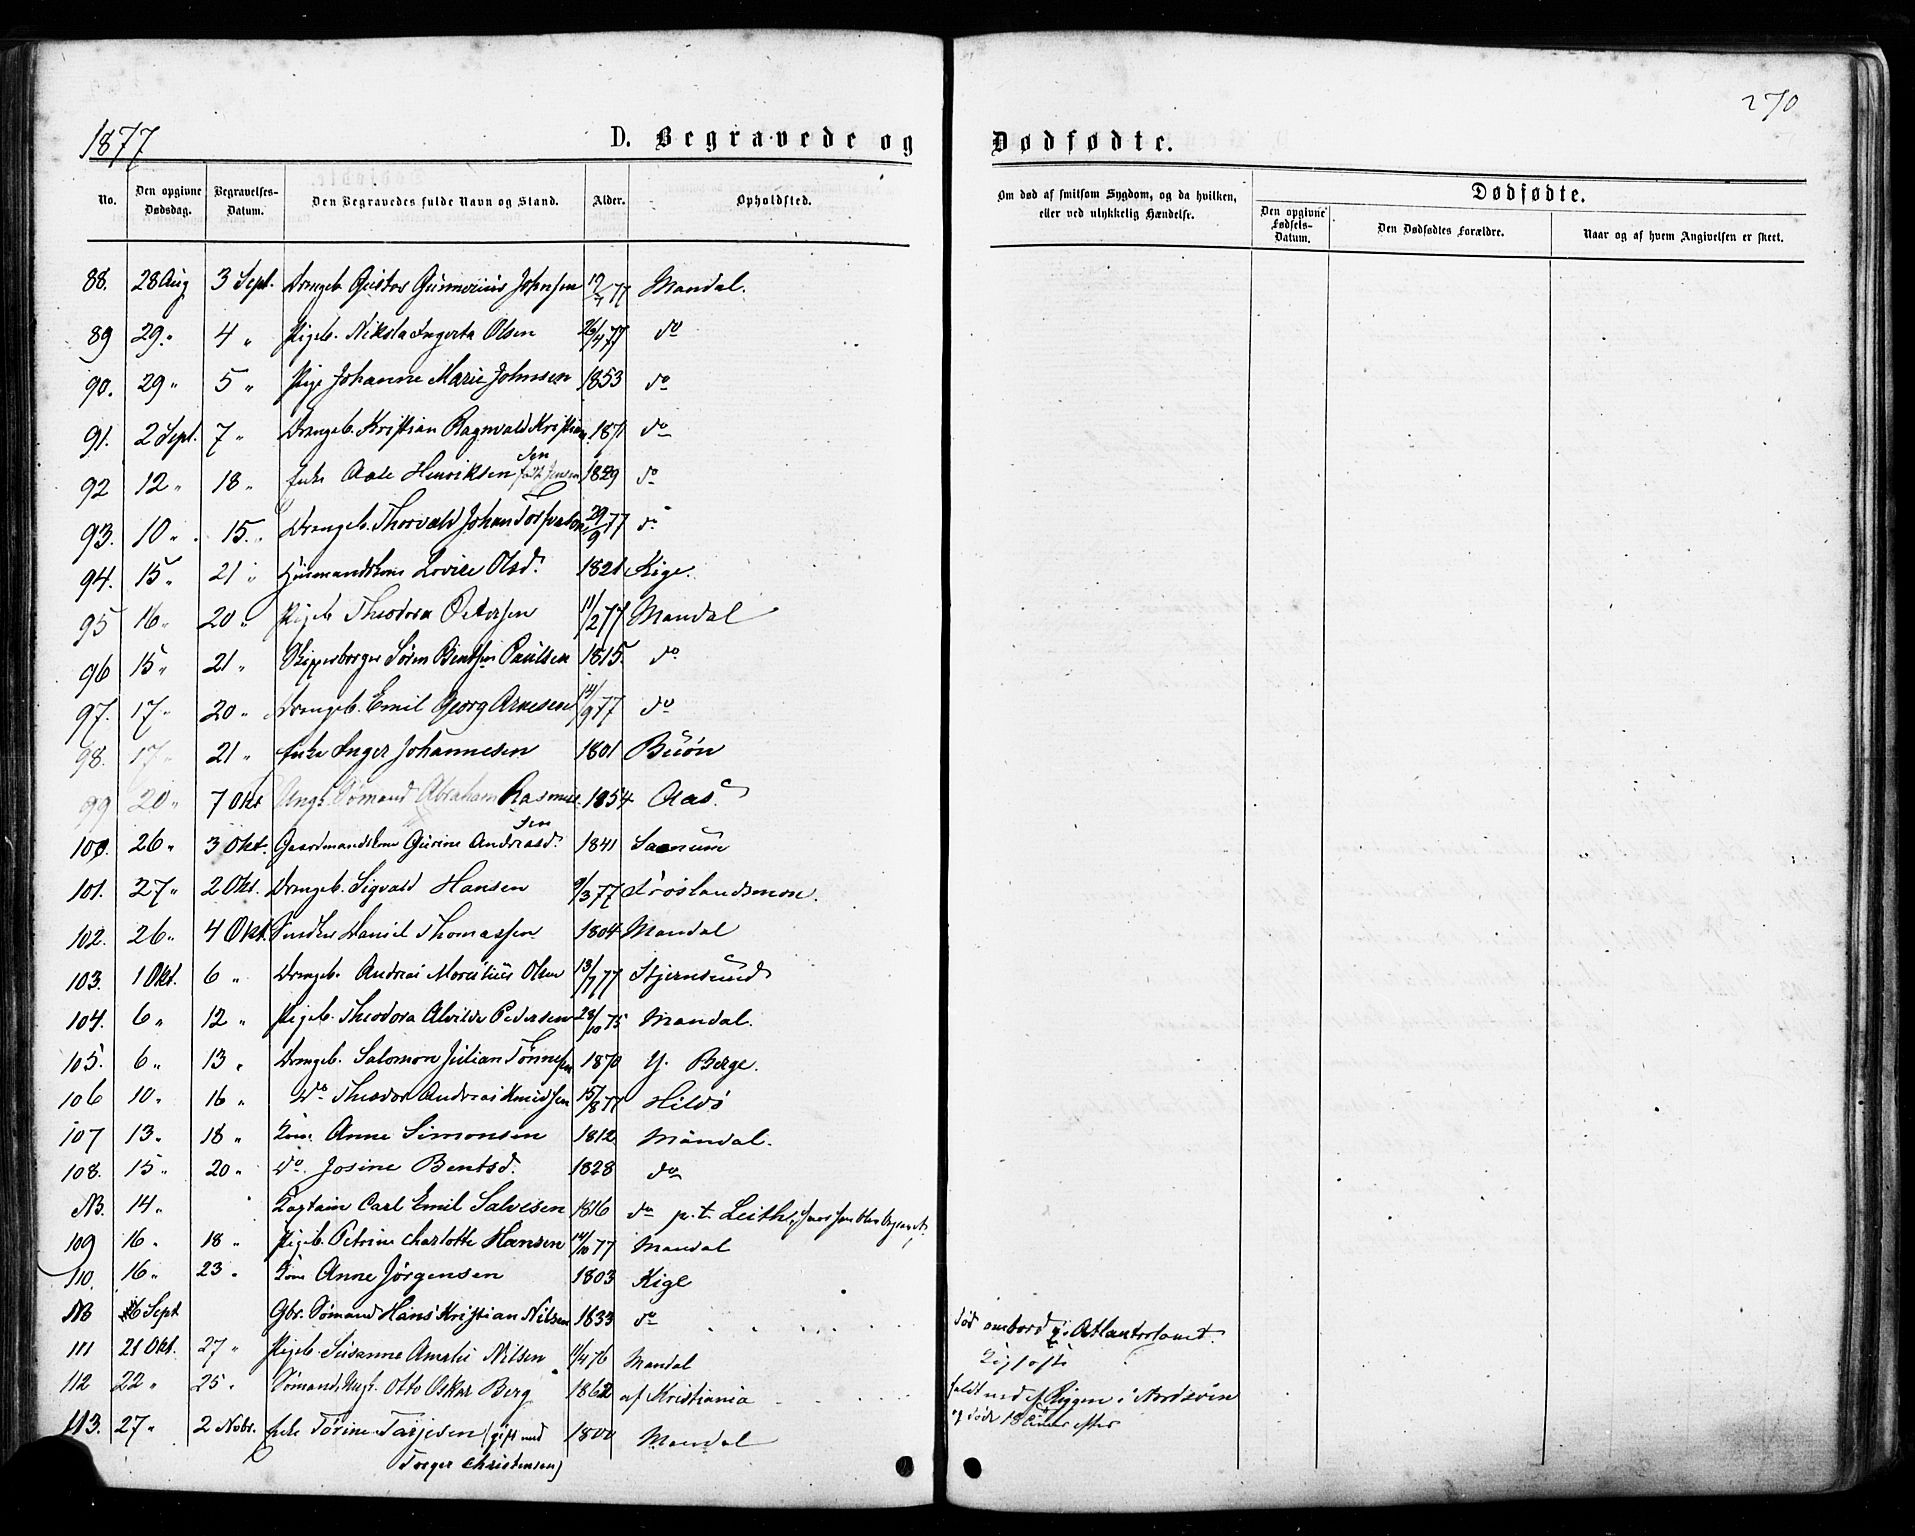 1877
270
D. Begravede og Dødfødte.
No. Den opgivne Dødsdag. Begravelses-Datum. Den Begravedes fulde Navn og Stand. Alder. Opholdsted. Om død af smitsom Sygdom, og da hvilken, eller ved ulykkelig Hændelse. Dødfødte.
Den opgivne Fødsels-Datum. Den Dødfødtes Forældre. Naar og af hvem Angivelsen er skeet.
88. 28 Aug 3 Sept. Drengeb. Gustav Gunnerius Johnsen 17/7 77 Mandal.
89 29 „ 4 „ Pigeb. Nikola Ingerta Olsen 26/4 77 do
90. 29 „ 5 „ Pige Johanne Marie Johnsen 1853 do
91. 2 Sept. 7 „ Drengeb. Kristian Ragnvald Kristian 1871 do
sen
92 12 „ 18 „ Enke Aase Henriksen født Jensen 1829 do
93. 10 „ 15 „ Drengeb. Thorvald Johan 29/9 77 do
94. 15 „ 21 „ Husmandskone Lovise Olsd. 1821 Kige.
95 16 „ 20 „ Pigeb. Theodora Petersen 11/2 77 Mandal
96 15 „ 21 „ Skipperborger Søren Bentsen Paulsen 1815. do
97. 17 „ 20 „ Drengeb. Emil Georg Arnesen 14/9 77 do
98. 17 „ 21 „ Enke Inger Johannesen 1801 Buøn
99 20 „ 7 Okt Ungk. Sømand Abraham Rasmus 1854 Aas.
sen
100. 26 „ 3 Okt. Gaardmandskone Gurine Andreasd. 1841 Sanum
101. 27 „ 2 Okt. Drengeb. Sigvald Hansen 9/3 77 Frøslandsmon.
102. 26 „ 4 Okt. Daniel Thomassen 1804 Mandal
103. 1 Okt. 6 „ Drengeb. Andreas Olsen 13/7 77 Stjernsund
104. 6 „ 12 „ Pigeb. Theodora Alvilde Pedersen 28/10 75 Mandal.
105. 6 „ 13 „ Drengeb. Salomon Julian Tønnesen 1870 Y. Berge.
106 10 „ 16 „ Do Theodor Andreas Knudsen 15/8 77 Hildø
107 13 „ 18 „ Kone Anne Simonsen 1812 Mandal.
108. 15 „ 20 „ Do. Josine Bentsd. 1828 do
NB. 14 „ Kaptain Carl Emil Salvesen 1816 do p.t. Leith, hvor han blev begravet.
109 16 „ 18 „ Pigeb. Petrine Charlotte Hansen 14/10 77 Mandal
110. 16 „ 23 „ Kone Anne Jørgensen 1803 Kige
NB 6 Sept Gbr. Sømand Hans Kristian Nilsen 1833 do død ombord i Atlanterhavet.
111 21 Okt. 27 „ Pigeb. Susanne Amalie Nilsen 11/4 76 Mandal
112 22 „ 25 „ Sømand, Ungk. Otto Oskar Berg 1862 af Kristiania faldt ned af Riggen i Nordsøen
og døde 18 Timer efter
113. 27 „ 2 Novbr. Enke Torine Tarjesen (gift med 1800 Mandal
Torger Christensen)